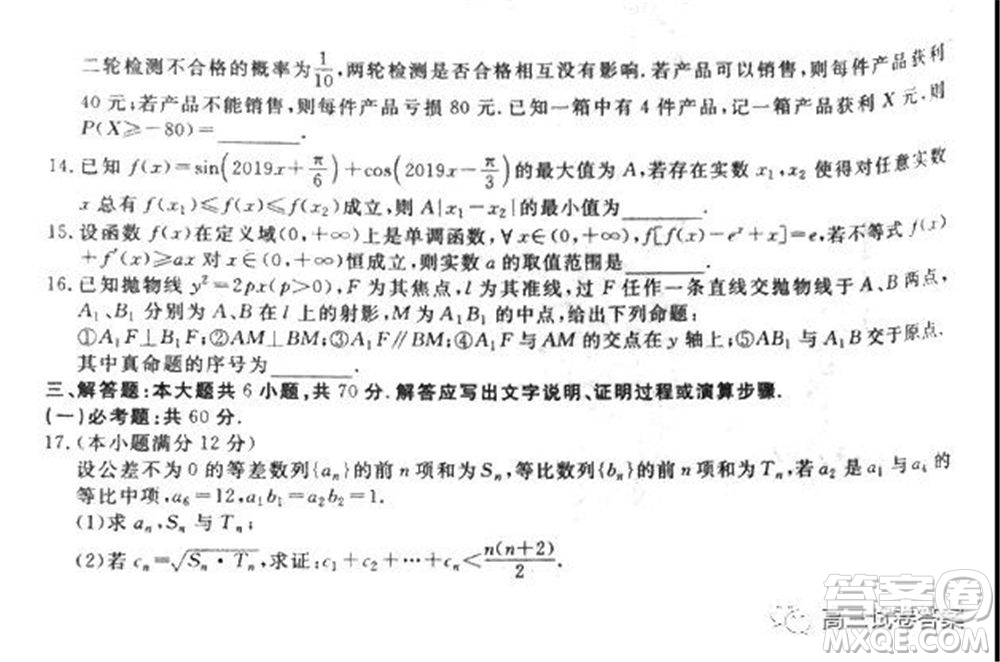 二轮检测不合格的概率为1/10,两轮检测是否合格相互没有影响.若产品可以销售,则每件产品获利
40元;若产品不能销售,则每件产品亏损80元.已知一箱中有4件产品,记一箱产品获利X元,则
P(X≥-80)=______.
14.已知f(x)=sin(2019x+π/6)+cos(2019x-π/3)的最大值为A,若存在实数x₁,x₂使得对任意实数
x总有f(x₁)≤f(x)≤f(x₂)成立,则A|x₁-x₂|的最小值为______.
15.设函数f(x)在定义域(0,+∞)上是单调函数,∀x∈(0,+∞),f[f(x)-eˣ+x]=e,若不等式f(x)
+f′(x)≥ax对x∈(0,+∞)恒成立,则实数a的取值范围是______.
16.已知抛物线y²=2px(p>0),F为其焦点,l为其准线,过F任作一条直线交抛物线于A、B两点,
A₁、B₁分别为A、B在l上的射影,M为A₁B₁的中点,给出下列命题:
①A₁F⊥B₁F;②AM⊥BM;③A₁F∥BM;④A₁F与AM的交点在y轴上;⑤AB₁与A₁B交于原点.
其中真命题的序号为______.
三、解答题:本大题共6小题,共70分.解答应写出文字说明、证明过程或演算步骤.
(一)必考题:共60分.
17.(本小题满分12分)
设公差不为0的等差数列{aₙ}的前n项和为Sₙ,等比数列{bₙ}的前n项和为Tₙ,若a₂是a₁与a₄的
等比中项,a₆=12,a₁b₁=a₂b₂=1.
(1)求aₙ,Sₙ与Tₙ;
(2)若cₙ=√(Sₙ·Tₙ),求证:c₁+c₂+⋯+cₙ<n(n+2)/2.
高三试卷答案
答案圈
MXQE.COM